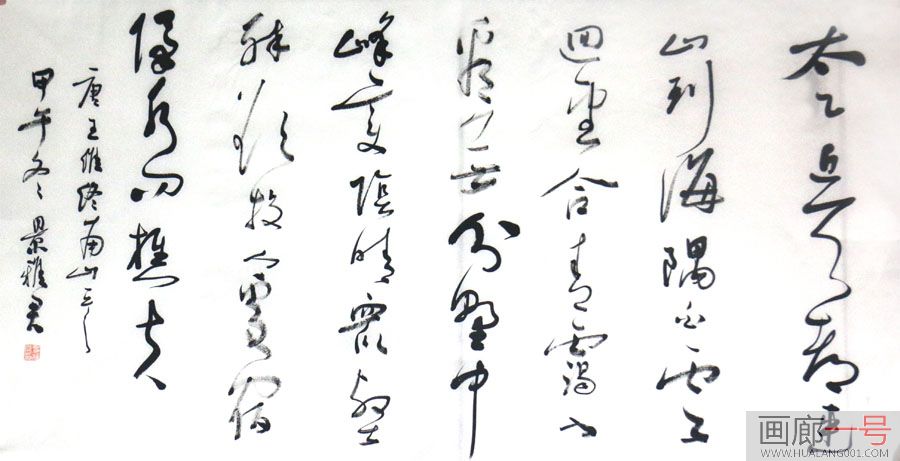 太乙近天都連
山到海隅白雲
迴望合青靄入
看無分野中
峰變陰晴眾壑
殊欲投人處宿
隔水问樵夫
唐王維終南山
甲午冬景雅君
画廊一号
WWW.HUALANG001.COM